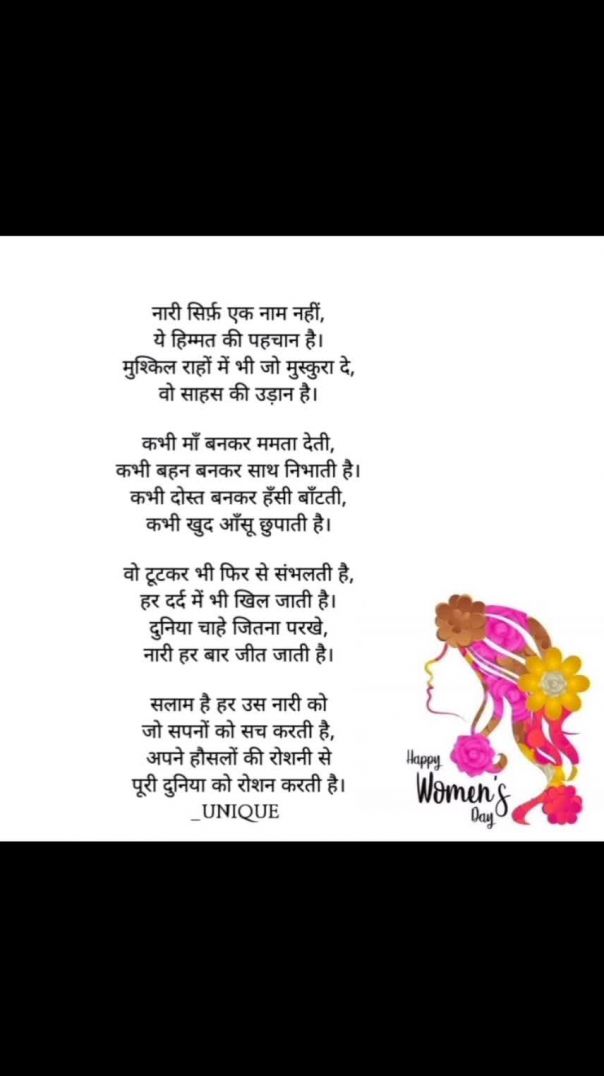 नारी सिर्फ़ एक नाम नहीं,
ये हिम्मत की पहचान है।
मुश्किल राहों में भी जो मुस्कुरा दे,
वो साहस की उड़ान है।
कभी माँ बनकर ममता देती,
कभी बहन बनकर साथ निभाती है।
कभी दोस्त बनकर हँसी बाँटती,
कभी खुद आँसू छुपाती है।
वो टूटकर भी फिर से संभलती है,
हर दर्द में भी खिल जाती है।
दुनिया चाहे जितना परखे,
नारी हर बार जीत जाती है।
सलाम है हर उस नारी को
जो सपनों को सच करती है,
अपने हौसलों की रोशनी से
पूरी दुनिया को रोशन करती है।
_UNIQUE
Happy
Women's
Day